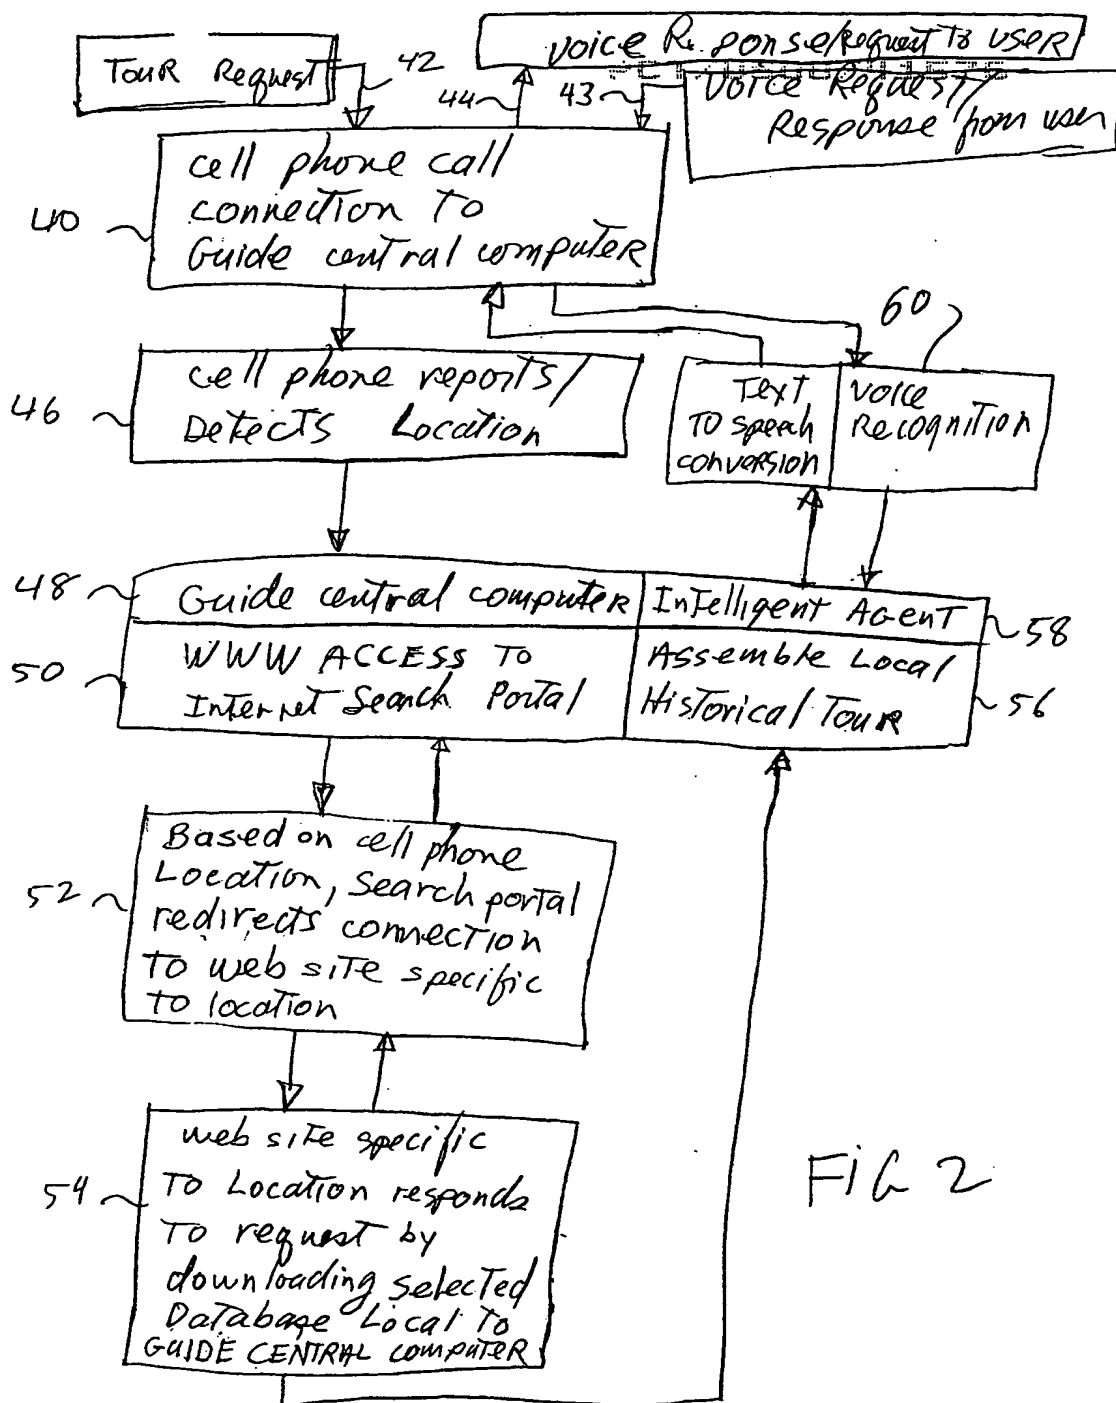 voice Response/Request To user
Tour Request
42
44
43
Voice Request/
Response from user
cell phone call
connection To
Guide central computer
40
60
cell phone reports/
Detects Location
46
Text
To speech
conversion
Voice
Recognition
48
Guide central computer
Intelligent Agent
58
50
WWW ACCESS To
Internet Search Portal
Assemble Local
Historical Tour
56
Based on cell phone
Location, search portal
redirects connection
To web site specific
To location
52
web site specific
To Location responds
To request by
downloading selected
Database Local To
GUIDE CENTRAL COMPUTER
54
FIG 2